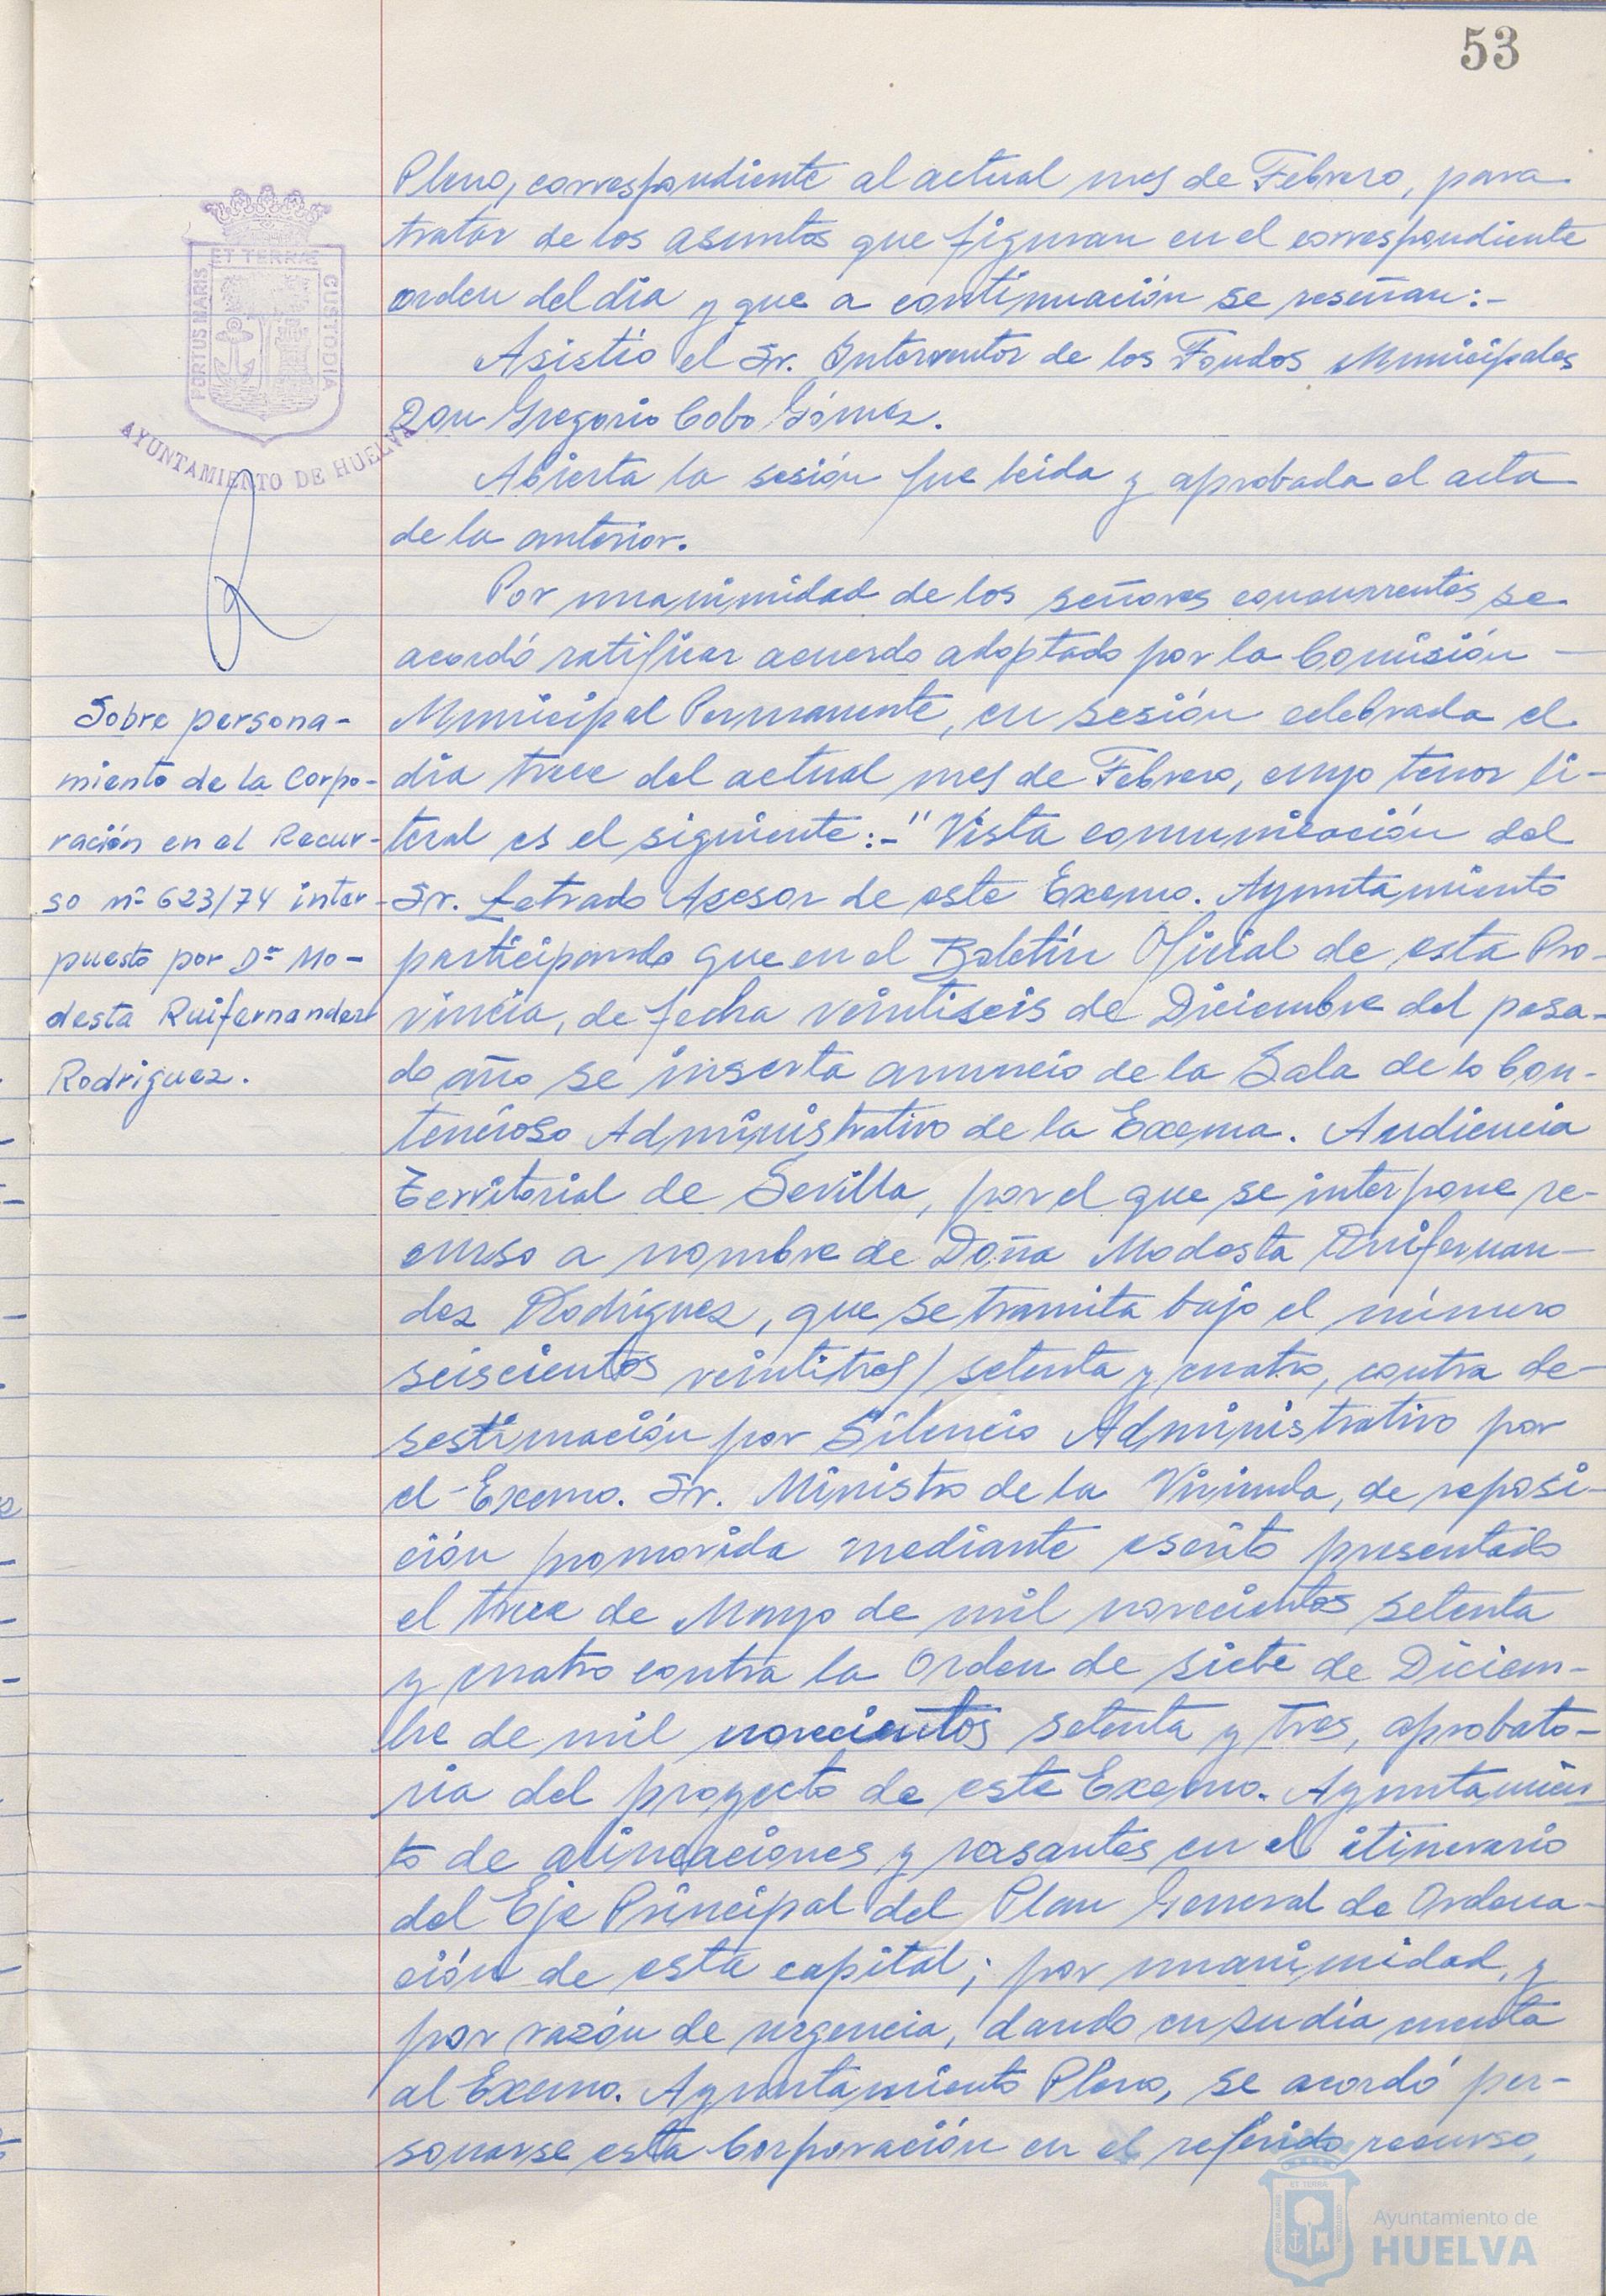 53
Pleno, correspondiente al actual mes de Febrero, para
tratar de los asuntos que figuran en el correspondiente
orden del día y que a continuación se reseñan:-
Asistió el Sr. Interventor de los Fondos Municipales
Don Gregorio Cobo Gómez.
Abierta la sesión fue leida y aprobada el acta
de la anterior.
Por unanimidad de los señores concurrentes se
acordó ratificar acuerdo adoptado por la Comisión -
Municipal Permanente, en sesión celebrada el
día trece del actual mes de Febrero, cuyo tenor li-
teral es el siguiente:-"Vista comunicación del
Sr. Letrado Asesor de este Excmo. Ayuntamiento
participando que en el Boletín Oficial de esta Pro-
vincia, de fecha veintiseis de Diciembre del pasa-
do año se inserta anuncio de la Sala de lo Con-
tencioso Administrativo de la Excma. Audiencia
Territorial de Sevilla, por el que se interpone re-
curso a nombre de Doña Modesta Ruifernan-
dez Rodríguez, que se tramita bajo el número
seiscientos veintitres/setenta y cuatro, contra de-
sestimación por Silencio Administrativo por
el Excmo. Sr. Ministro de la Vivienda, de reposi-
ción promovida mediante escrito presentado
el trece de Mayo de mil novecientos setenta
y cuatro contra la Orden de siete de Diciem-
bre de mil novecientos setenta y tres, aprobato-
ria del proyecto de este Excmo. Ayuntamien-
to de alineaciones y rasantes en el itinerario
del Eje Principal del Plan General de Ordena-
ción de esta capital; por unanimidad, y
por razón de urgencia, dando en su día cuenta
al Excmo. Ayuntamiento Pleno, se acordó per-
sonarse esta Corporación en el referido recurso,
PORTUS MARIS
ET TERRAE
CUSTODIA
AYUNTAMIENTO DE HUELVA
Sobre persona-
miento de la Corpo-
ración en el Recur-
so nº 623/74 inter-
puesto por Dª Mo-
desta Ruifernandez
Rodriguez.
Ayuntamiento de
HUELVA